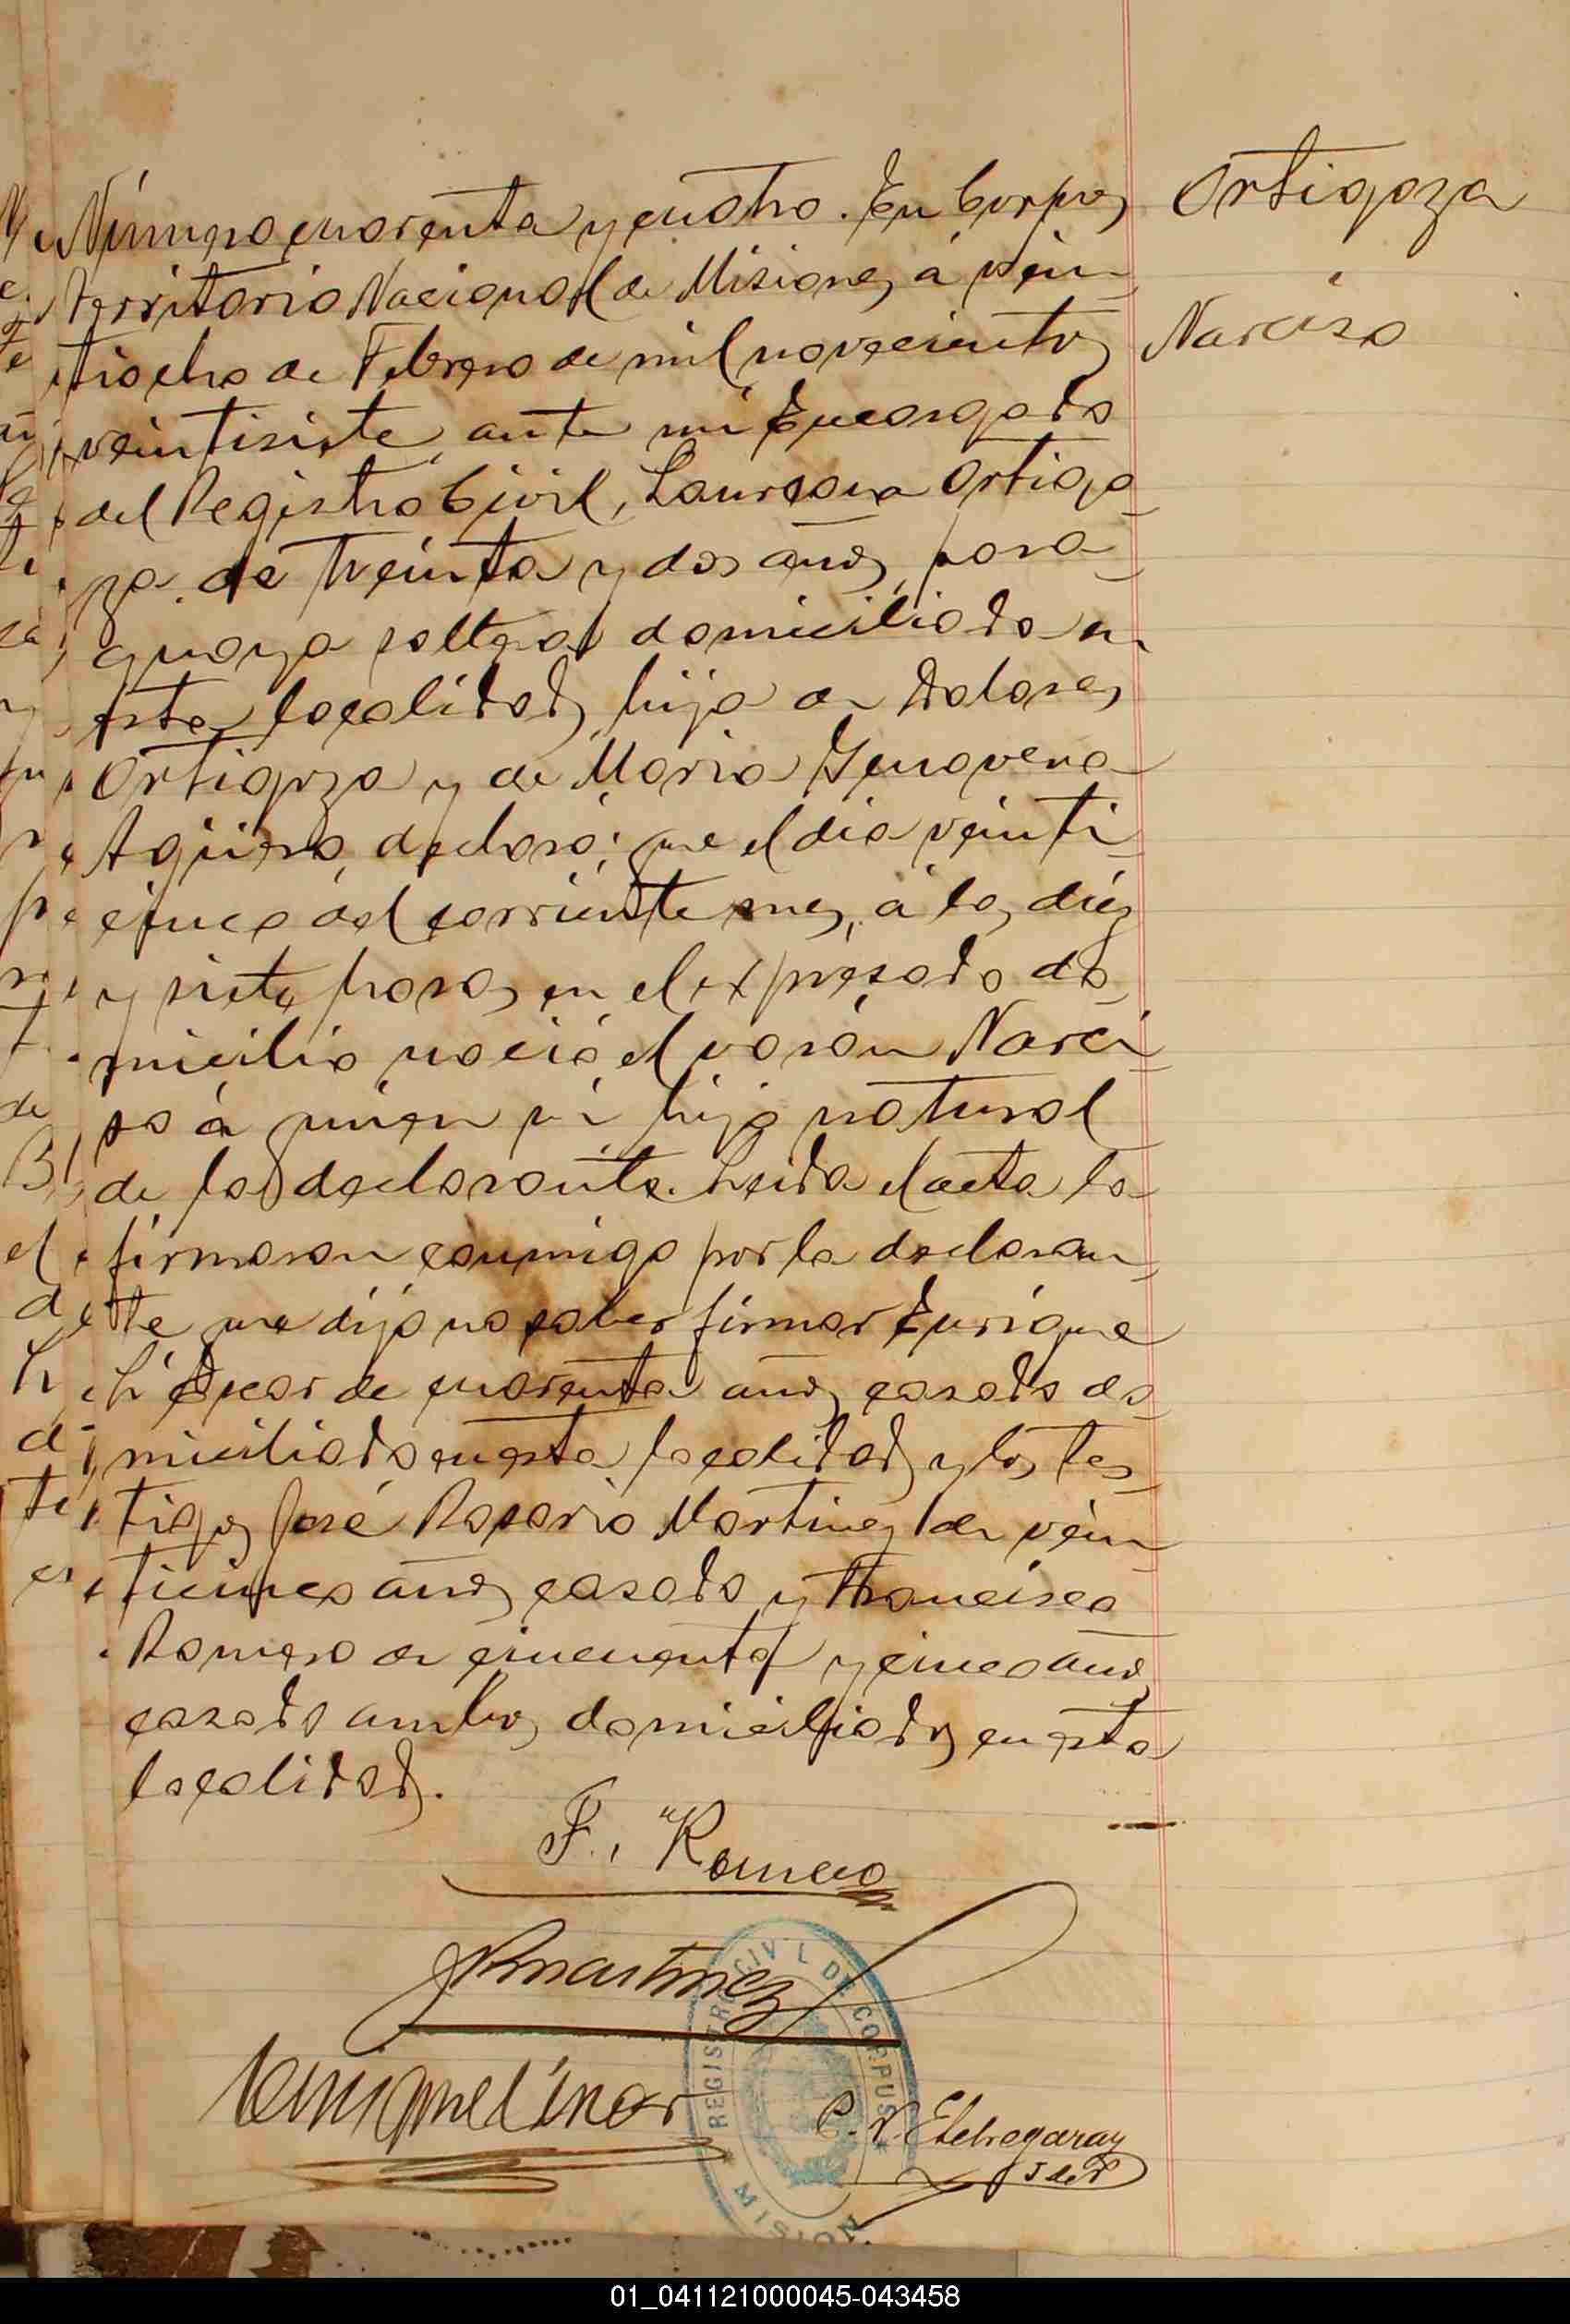 Número cuarenta y cuatro. En Corpus
Territorio Nacional de Misiones, á vein
tiocho de Febrero de mil novecientos
veintisiete, ante mí Encargado
del Registro Civil, Laureana Ortigo
za de treinta y dos años, para
guaya soltera domiciliada en
esta localidad, hija de Dolores
Ortigoza y de Maria Genoveva
Agüero, declaró: que el dia veinti
cinco del corriente mes, á las diez
y siete horas, en el expresado do
micilio nació el varón Narci
so á quien vi hijo natural
de la declarante. Leida el acta la
firmaron conmigo por la declaran
te que dijo no saber firmar Enrique
de cuarenta años casado do
miciliado en esta localidad y los tes
tigos José Rosario Martinez de vein
ticinco años casado y Francisco
Romero de cincuenta y cinco años
casado ambos domiciliados en esta
localidad.
Ortigoza
Narciso
F. Romero
JRMartinez
C. V. Etchegaray
J de P
REGISTRO CIVIL DE CORPUS
MISION
01_041121000045-043458